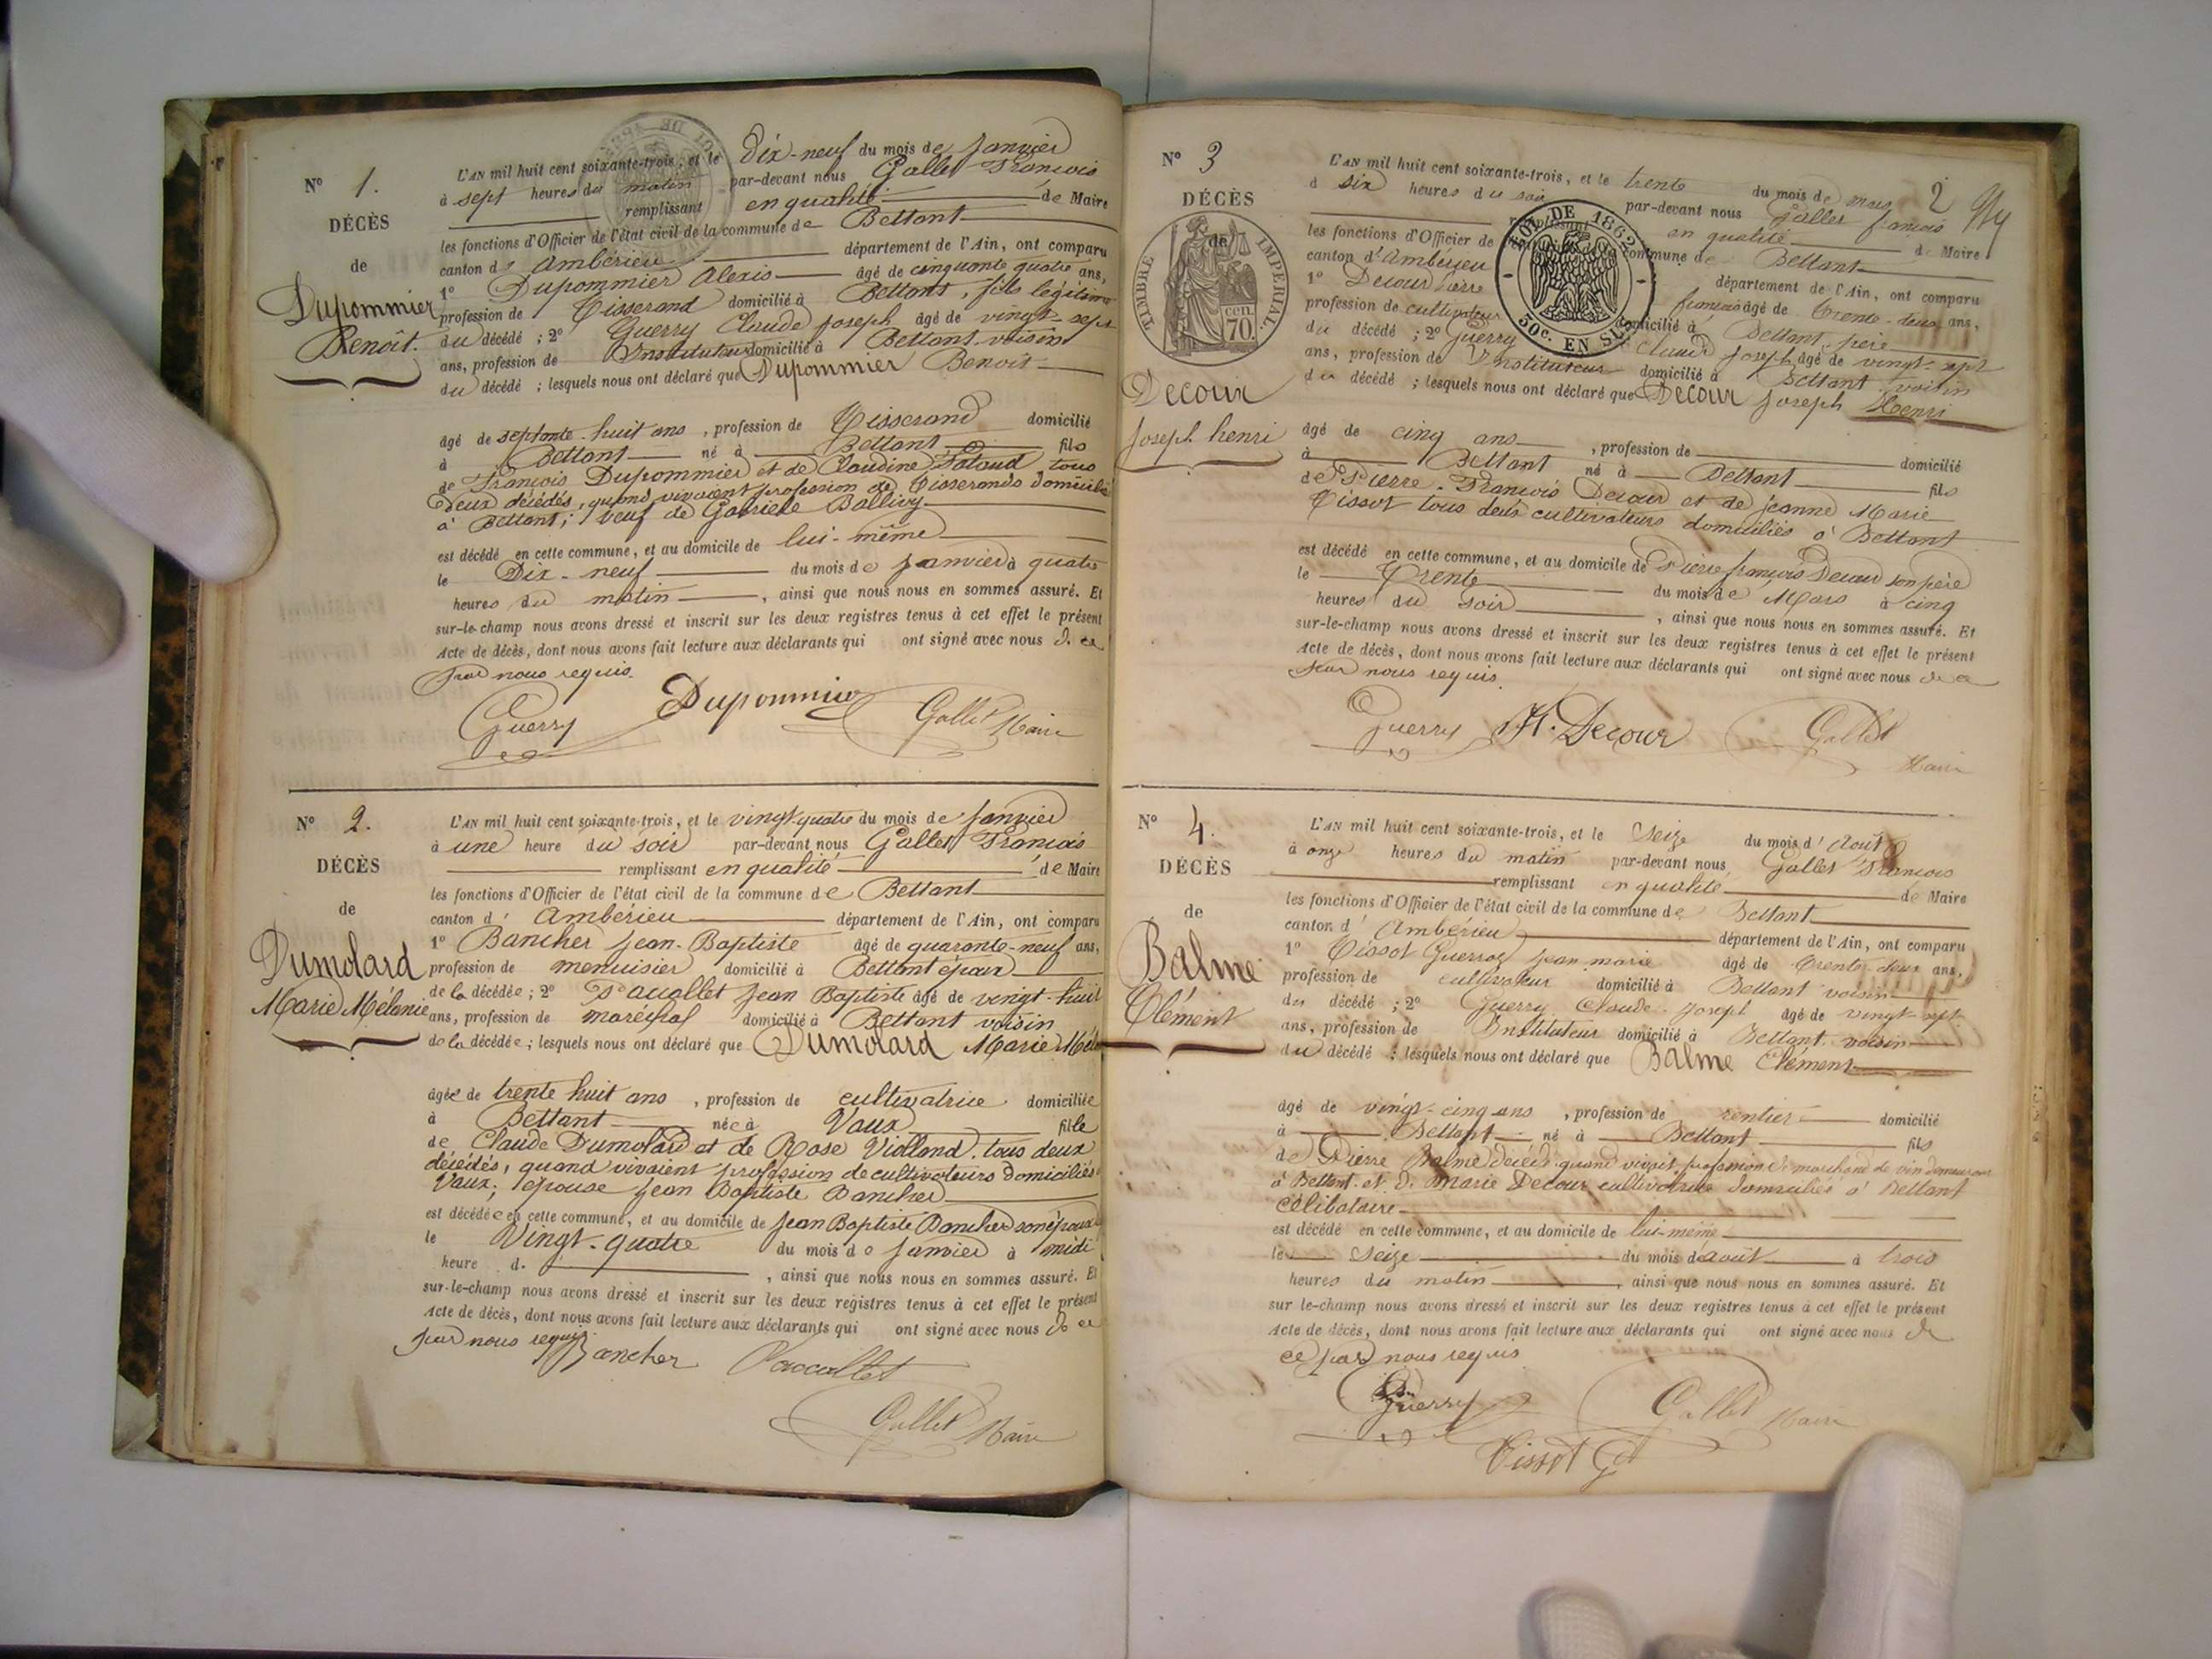 N° 1.
DÉCÈS
de
Dupommier
Benoit.
L'AN mil huit cent soixante-trois, et le Dix-neuf du mois de Janvier
à sept heures du matin par-devant nous Gallet François
remplissant en qualité de Maire
les fonctions d'Officier de l'état civil de la commune de Bettant
canton d' Ambérieu département de l'Ain, ont comparu
1° Dupommier Alexis âgé de cinquante quatre ans,
profession de Tisserand domicilié à Bettant, fils légitime
du décédé ; 2° Guerry Claude Joseph âgé de vingt-sept
ans, profession de Instituteur domicilié à Bettant voisin
du décédé ; lesquels nous ont déclaré que Dupommier Benoit
âgé de septante-huit ans, profession de Tisserand domicilié
à Bettant né à Bettant fils
de François Dupommier et de Claudine tous
deux décédés, quand vivaient profession de Tisserands domiciliés
à Bettant ; veuf de Gabriele Ballivy
est décédé en cette commune, et au domicile de lui-même
le Dix-neuf du mois de Janvier à quatre
heures du matin, ainsi que nous nous en sommes assuré. Et
sur-le-champ nous avons dressé et inscrit sur les deux registres tenus à cet effet le présent
Acte de décès, dont nous avons fait lecture aux déclarants qui ont signé avec nous de ce
par nous requis.
Guerry Dupommier Gallet Maire
N° 2.
DÉCÈS
de
Dumolard
Marie Mélanie
L'AN mil huit cent soixante-trois, et le vingt quatre du mois de Janvier
à une heure du soir par-devant nous Gallet François
remplissant en qualité de Maire
les fonctions d'Officier de l'état civil de la commune de Bettant
canton d' Ambérieu département de l'Ain, ont comparu
1° Bancher Jean-Baptiste âgé de quarante-neuf ans,
profession de menuisier domicilié à Bettant époux
de la décédée ; 2° Jean Baptiste âgé de vingt-huit
ans, profession de maréchal domicilié à Bettant voisin
de la décédée ; lesquels nous ont déclaré que Dumolard Marie Méla
âgée de trente huit ans, profession de cultivatrice domiciliée
à Bettant née à Vaux fille
de Claude Dumolard et de Rose Violland, tous deux
décédés, quand vivaient profession de cultivateurs domiciliés
Vaux ; épouse Jean Baptiste Bancher
est décédée en cette commune, et au domicile de Jean Baptiste Bancher son époux
le Vingt-quatre du mois de Janvier à midi
heure d. , ainsi que nous nous en sommes assuré. Et
sur-le-champ nous avons dressé et inscrit sur les deux registres tenus à cet effet le présent
Acte de décès, dont nous avons fait lecture aux déclarants qui ont signé avec nous de ce
par nous requis.
Bancher
Gallet Maire
N° 3
DÉCÈS
de
TIMBRE IMPÉRIAL
70 cen.
Decour
Joseph henri
2
LOI DE 1862
30c. EN SUS
L'AN mil huit cent soixante-trois, et le trente du mois de mars
à six heures du soir par-devant nous Gallet françois
remplissant en qualité de Maire
les fonctions d'Officier de commune de Bettant
canton d'Ambérieu département de l'Ain, ont comparu
1° Decour Pierre françois âgé de trente-deux ans,
profession de cultivateur domicilié à Bettant, père
du décédé ; 2° Guerry Claude Joseph âgé de vingt-sept
ans, profession de Instituteur domicilié à Bettant voisin
du décédé ; lesquels nous ont déclaré que Decour Joseph Henri
âgé de cinq ans, profession de domicilié
à Bettant né à Bettant fils
de Pierre-François Decour et de Jeanne Marie
Tissot tous deux cultivateurs domiciliés à Bettant
est décédé en cette commune, et au domicile de Pierre françois Decour son père
le Trente du mois de Mars à cinq
heures du soir, ainsi que nous nous en sommes assuré. Et
sur-le-champ nous avons dressé et inscrit sur les deux registres tenus à cet effet le présent
Acte de décès, dont nous avons fait lecture aux déclarants qui ont signé avec nous de ce
par nous requis
Guerry Decour Gallet
Maire
N° 4.
DÉCÈS
de
Balme
Clément
L'AN mil huit cent soixante-trois, et le Seize du mois d'Août
à onze heures du matin par-devant nous Gallet François
remplissant en qualité de Maire
les fonctions d'Officier de l'état civil de la commune de Bettant
canton d' Ambérieu département de l'Ain, ont comparu
1° Tissot Guerroz Jean marie âgé de trente deux ans,
profession de cultivateur domicilié à Bettant voisin
du décédé ; 2° Guerry Claude-Joseph âgé de vingt-sept
ans, profession de Instituteur domicilié à Bettant voisin
du décédé : lesquels nous ont déclaré que Balme Clément
âgé de vingt-cinq ans, profession de rentier domicilié
à Bettant né à Bettant fils
de Pierre Balme décédé quand vivait profession de marchand de vin demeurant
à Bettant et de Marie Decour cultivatrice domiciliés à Bettant
célibataire
est décédé en cette commune, et au domicile de lui-même
le Seize du mois d'août à trois
heures du matin, ainsi que nous nous en sommes assuré. Et
sur le-champ nous avons dressé et inscrit sur les deux registres tenus à cet effet le présent
Acte de décès, dont nous avons fait lecture aux déclarants qui ont signé avec nous de
ce par nous requis
Guerry Gallet Maire
Tissot